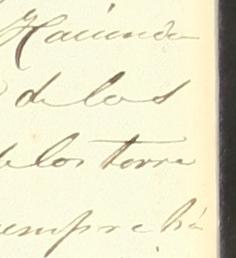 Hacienda
de los
de los torre
empre há